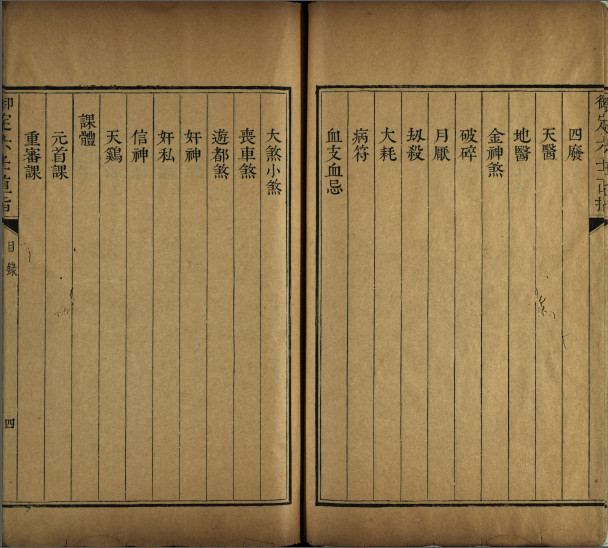 四廢
天醫
地醫
金神煞
破碎
月厭
刼殺
大耗
病符
血支血忌
大煞小煞
喪車煞
遊都煞
奸神
奸私
信神
天鷄
課體
元首課
重審課
御定六壬直指
目錄
四